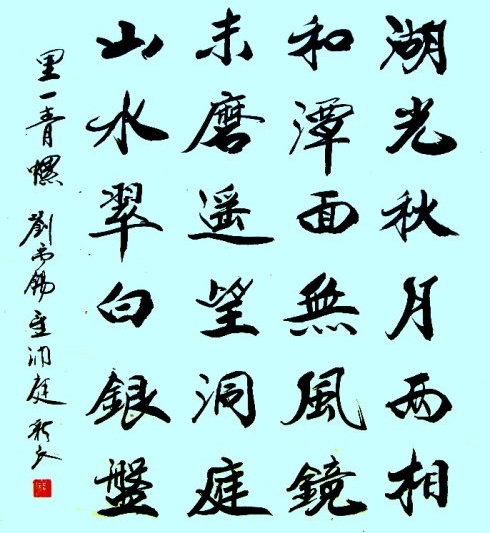 湖光秋月两相
和潭面無風鏡
未磨遥望洞庭
山水翠白銀盤
里一青螺 劉禹錫望洞庭